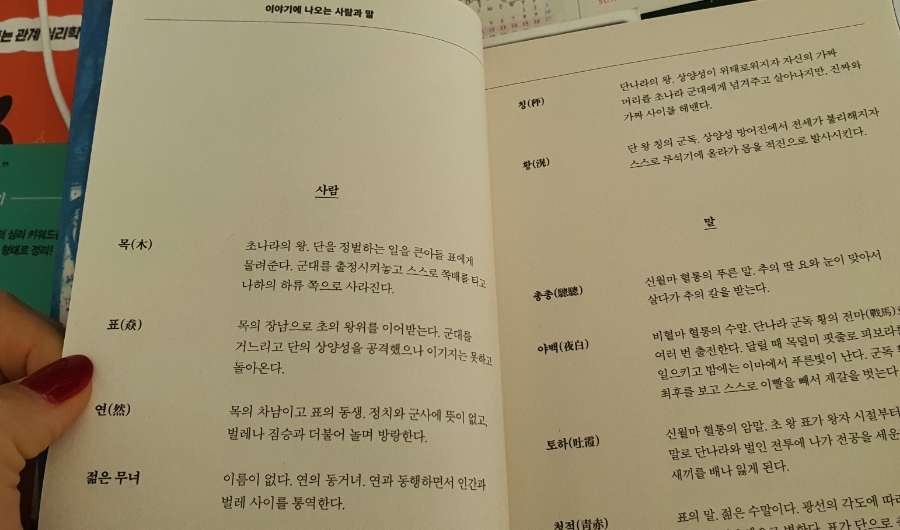 는 관계 심리학
심리 키워드
형태로 정리!
이야기에 나오는 사람과 말
사람
목(木)
초나라의 왕. 단을 정벌하는 일을 큰아들 표에게
물려준다. 군대를 출정시켜놓고 스스로 쪽배를 타고
나하의 하류 쪽으로 사라진다.
표(猋)
목의 장남으로 초의 왕위를 이어받는다. 군대를
거느리고 단의 상양성을 공격했으나 이기지는 못하고
돌아온다.
연(然)
목의 차남이고 표의 동생. 정치와 군사에 뜻이 없고,
벌레나 짐승과 더불어 놀며 방랑한다.
젊은 무녀
이름이 없다. 연의 동거녀. 연과 동행하면서 인간과
벌레 사이를 통역한다.
칭(秤)
단나라의 왕. 상양성이 위태로워지자 자신의 가짜
머리를 초나라 군대에게 넘겨주고 살아나지만, 진짜와
가짜 사이를 헤맨다.
황(滉)
단 왕 칭의 군독. 상양성 방어진에서 전세가 불리해지자
스스로 투석기에 올라가 몸을 적진으로 발사시킨다.
말
총총(驄驄)
신월마 혈통의 푸른 말. 추의 딸 요와 눈이 맞아서
살다가 추의 칼을 받는다.
야백(夜白)
비혈마 혈통의 수말. 단나라 군독 황의 전마(戰馬)로
여러 번 출전한다. 달릴 때 목덜미 핏줄로 피보라
일으키고 밤에는 이마에서 푸른빛이 난다. 군독
최후를 보고 스스로 이빨을 빼서 재갈을 벗는다
토하(吐霞)
신월마 혈통의 암말. 초 왕 표가 왕자 시절부터
말로 단나라와 벌인 전투에 나가 전공을 세운
새끼를 배나 잃게 된다.
청적(靑赤)
표의 말. 젊은 수말이다. 광선의 각도에 따라
표가 단으로